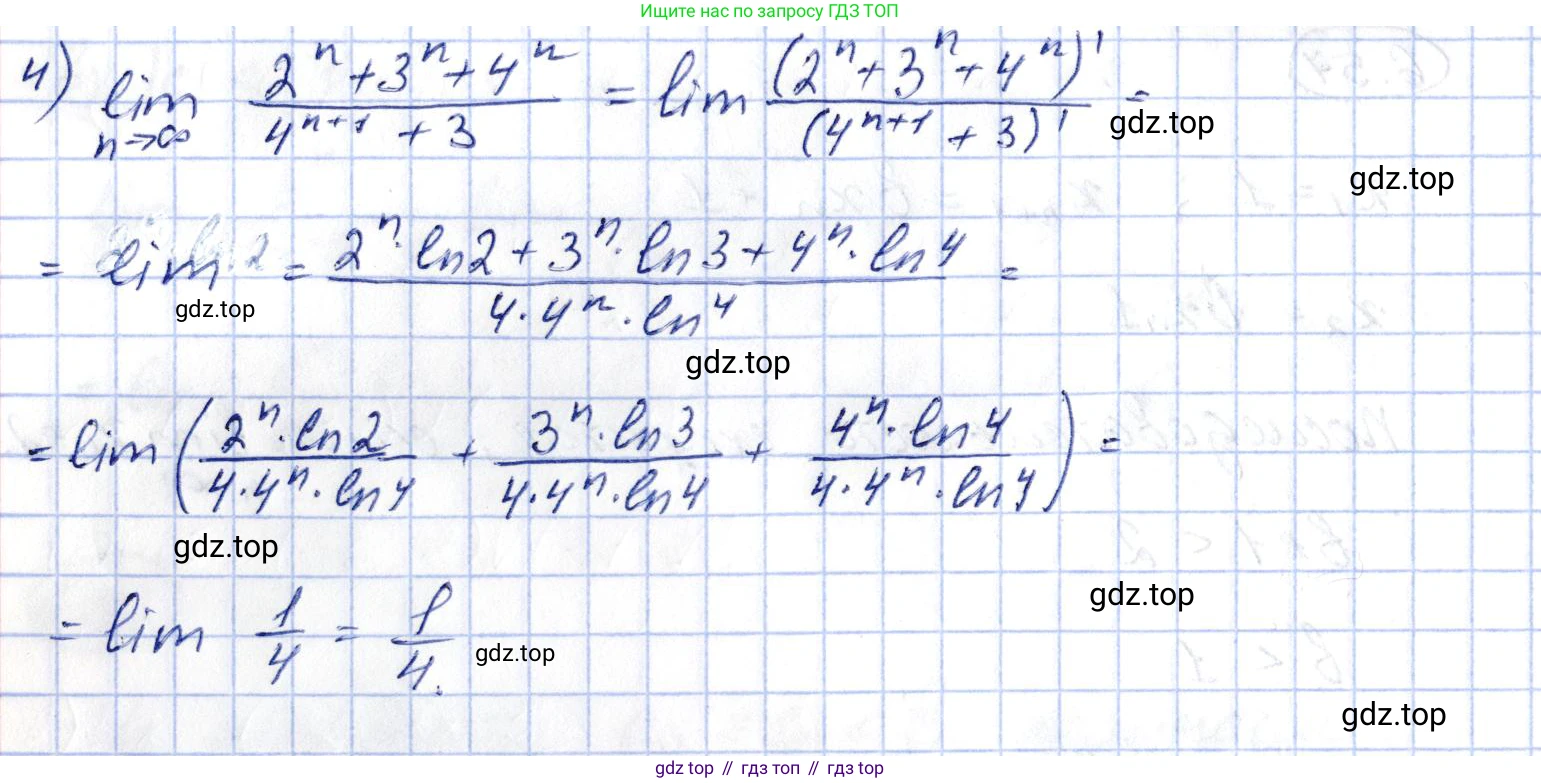 Ищите нас по запросу ГДЗ ТОП
4) lim n→∞ (2^n + 3^n + 4^n)/(4^(n+1) + 3) = lim (2^n + 3^n + 4^n)'/(4^(n+1) + 3)' =
gdz.top
gdz.top
= lim = (2^n · ln2 + 3^n · ln3 + 4^n · ln4)/(4 · 4^n · ln4) =
gdz.top
gdz.top
= lim ((2^n · ln2)/(4 · 4^n · ln4) + (3^n · ln3)/(4 · 4^n · ln4) + (4^n · ln4)/(4 · 4^n · ln4)) =
gdz.top
gdz.top
= lim 1/4 = 1/4.
gdz.top
gdz.top
gdz top // гдз топ // гдз top